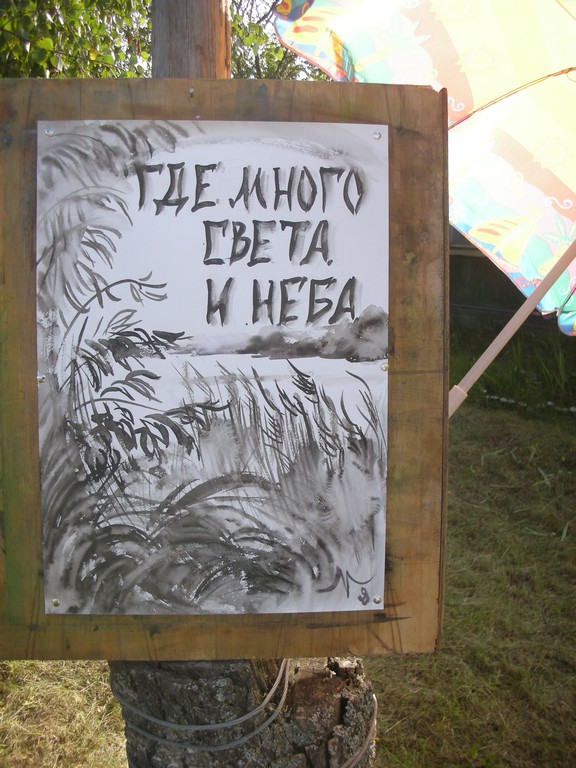 ГДЕ МНОГО
СВЕТА
И НЕБА